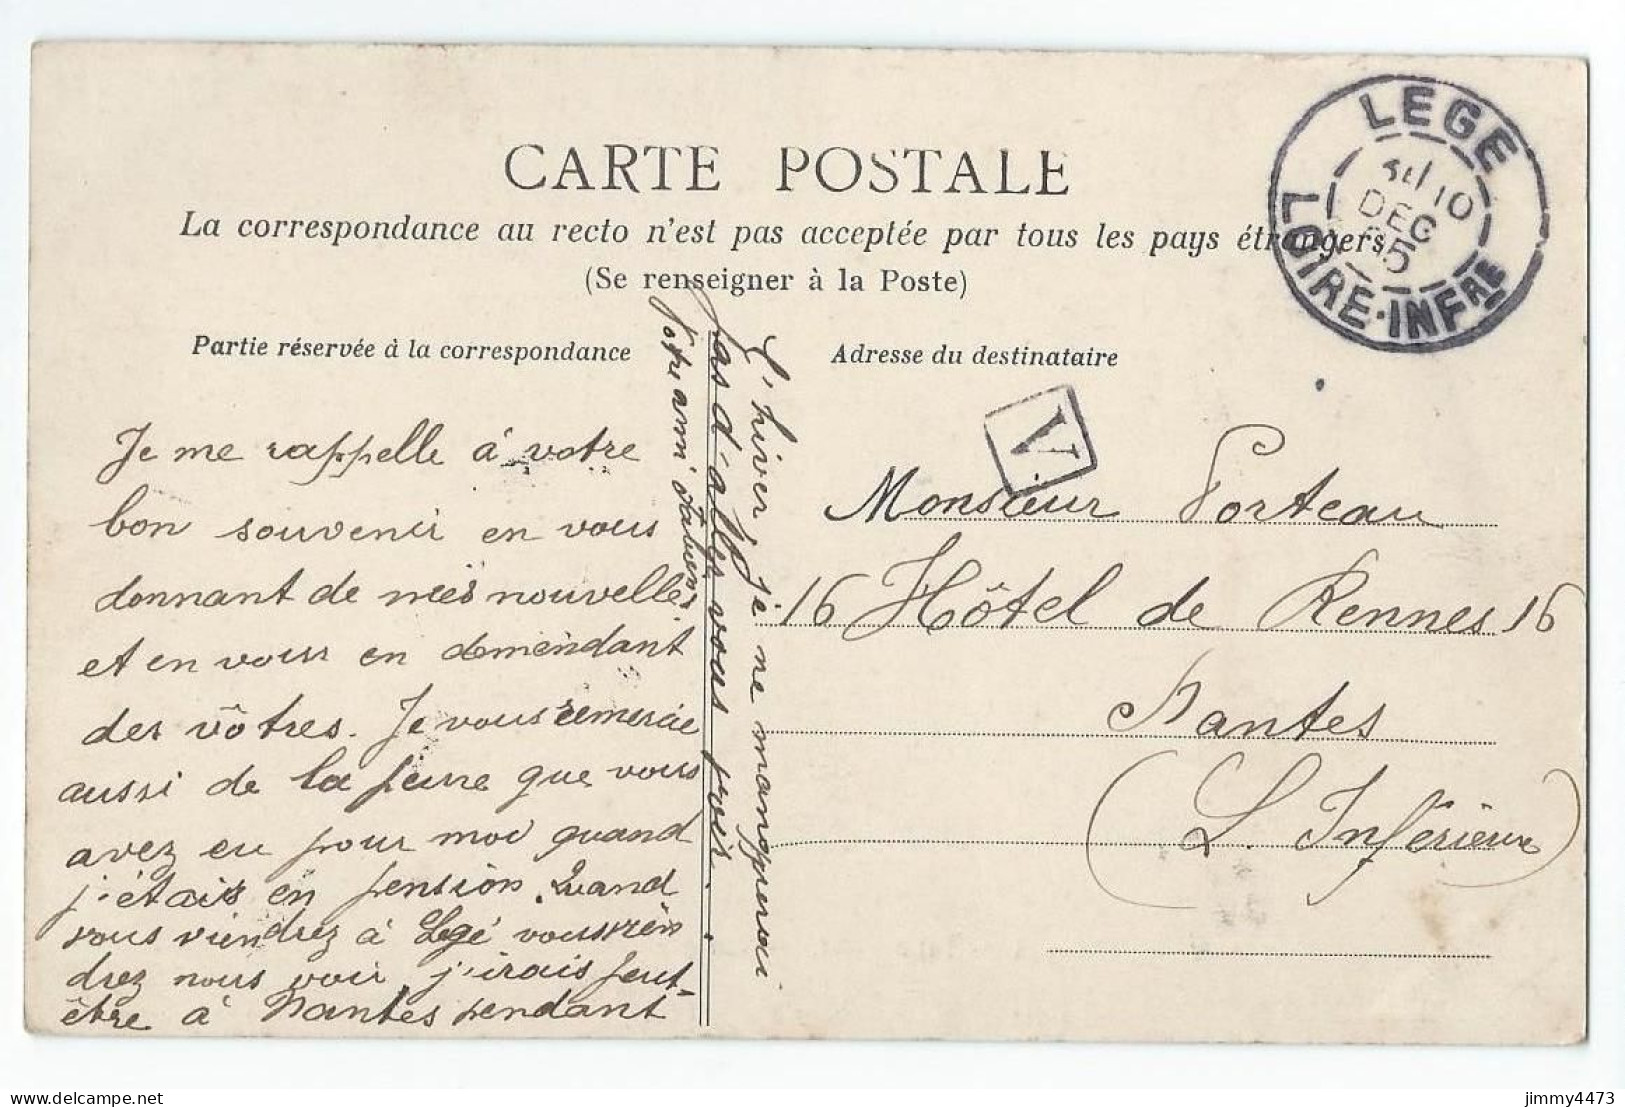 CARTE POSTALE
La correspondance au recto n'est pas acceptée par tous les pays étrangers
(Se renseigner à la Poste)
Partie réservée à la correspondance
Je me rappelle à votre
bon souvenir en vous
donnant de mes nouvelles
et en vous en demendant
des vôtres. Je vous remercie
aussi de la peine que vous
avez eu pour moi quand
j'étais en pension. Quand
vous viendrez à Legé vous vien
drez nous voir j'irais peut-
être à Nantes pendant
L'hiver, je ne manquerai
pas d'aller vous voir.
Votre ami
Adresse du destinataire
V
Monsieur Porteau
16 Hôtel de Rennes 16
Nantes
(L. Inférieure)
LEGE
10
DEC
05
LOIRE-INFRE
delcampe.net
jimmy4473